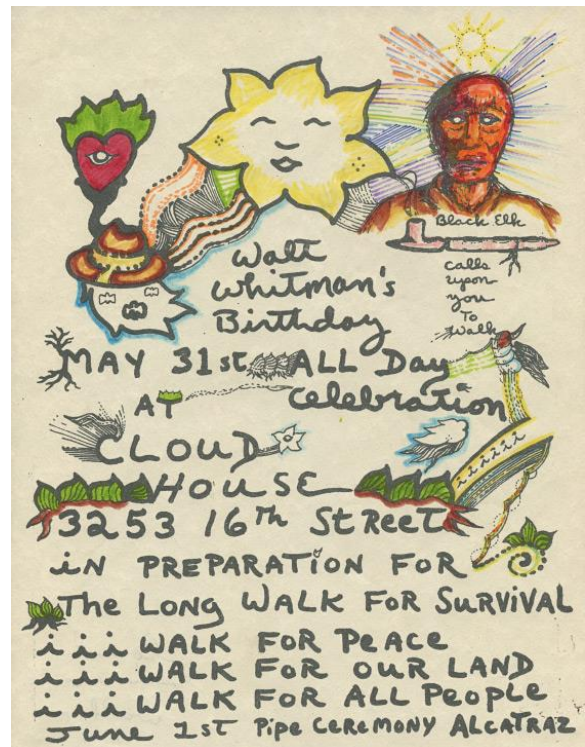 Black Elk
calls
upon
you
To
Walk
Walt
Whitman's
Birthday
MAY 31st ALL Day
AT Celebration
CLOUD
HOUSE
3253 16th Street
iiiiii
in PREPARATION FOR
The Long WALK FOR SURVIVAL
i i i WALK FOR PeACe
i i i WALK FOR OUR LAND
i i i WALK FOR ALL People
June 1st Pipe CeReMONY ALCATRAZ